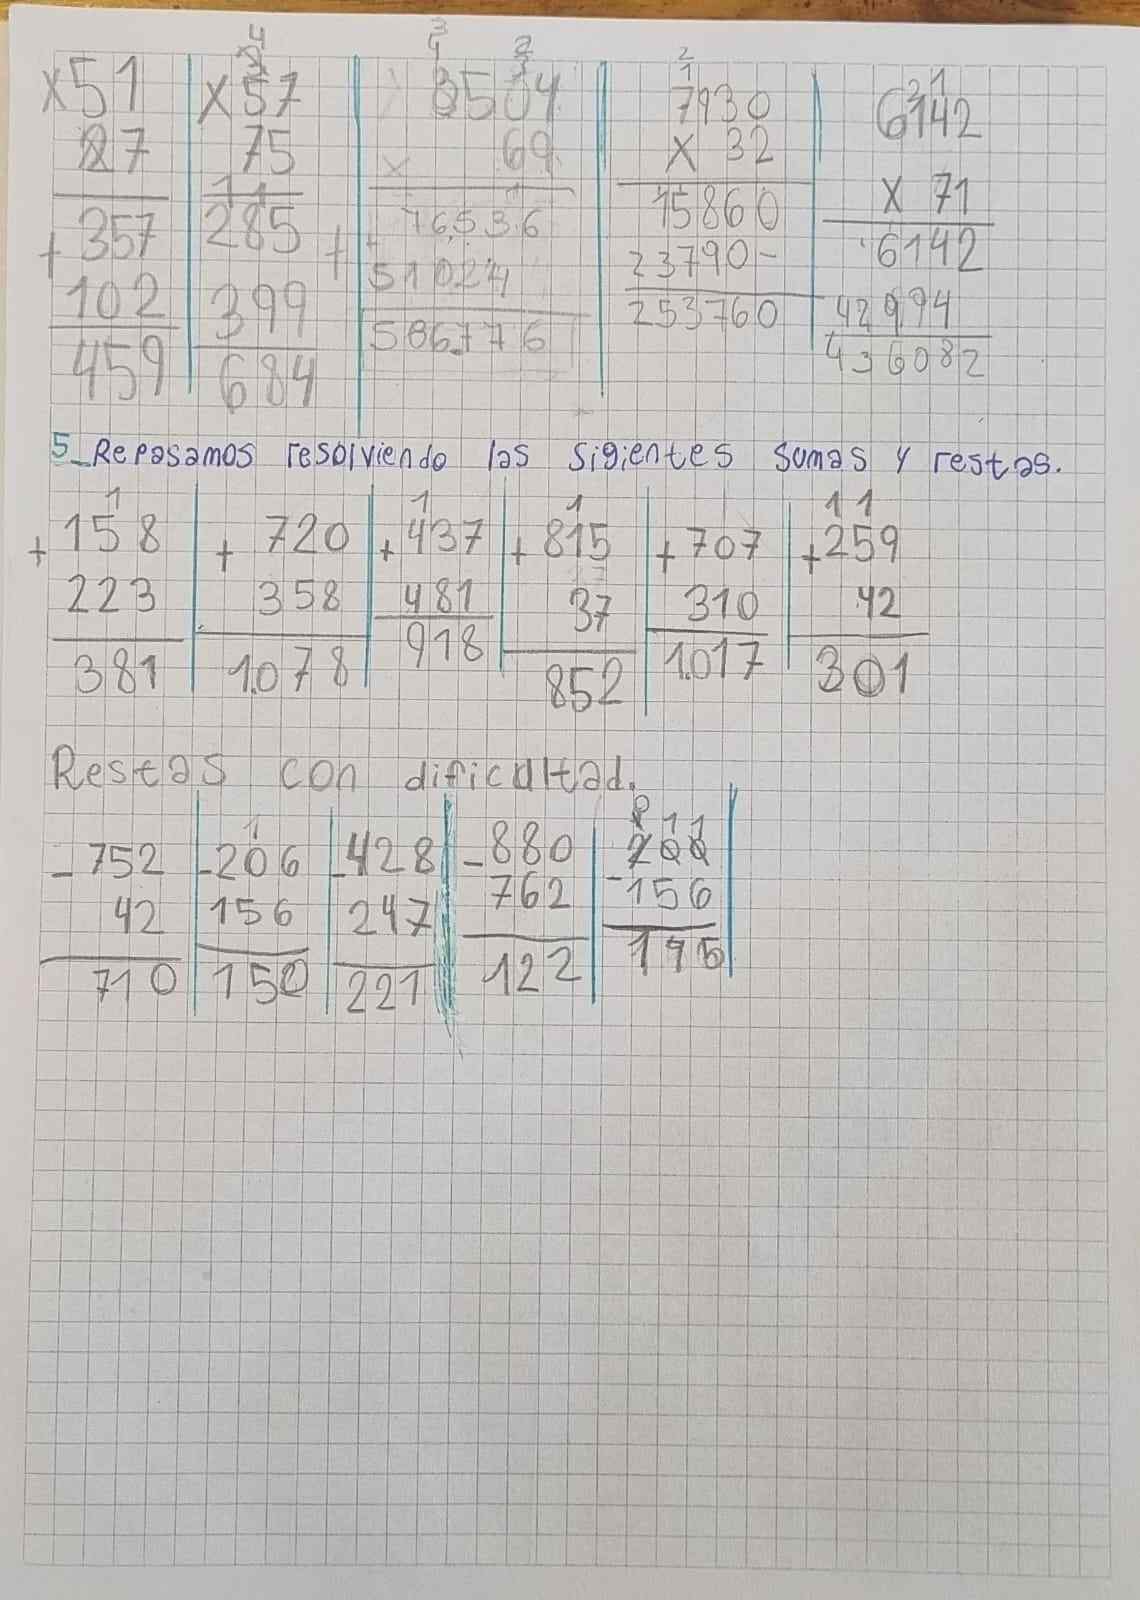 x51
27
357
+
102
459
x57
75
285
+
399
684
8504
x 69
76536
+
51024
586776
7930
x 32
15860
23790-
253760
6142
x 71
6142
42994
436082
5_Repasamos resolviendo las sigientes sumas y restas.
1
+158
223
381
+720
358
1.078
1
+437
481
918
1
+815
37
852
+707
310
1.017
11
+259
42
301
Restas con dificultad.
-752
42
710
1
-206
156
150
-428
247
221
-880
762
122
11
200
-156